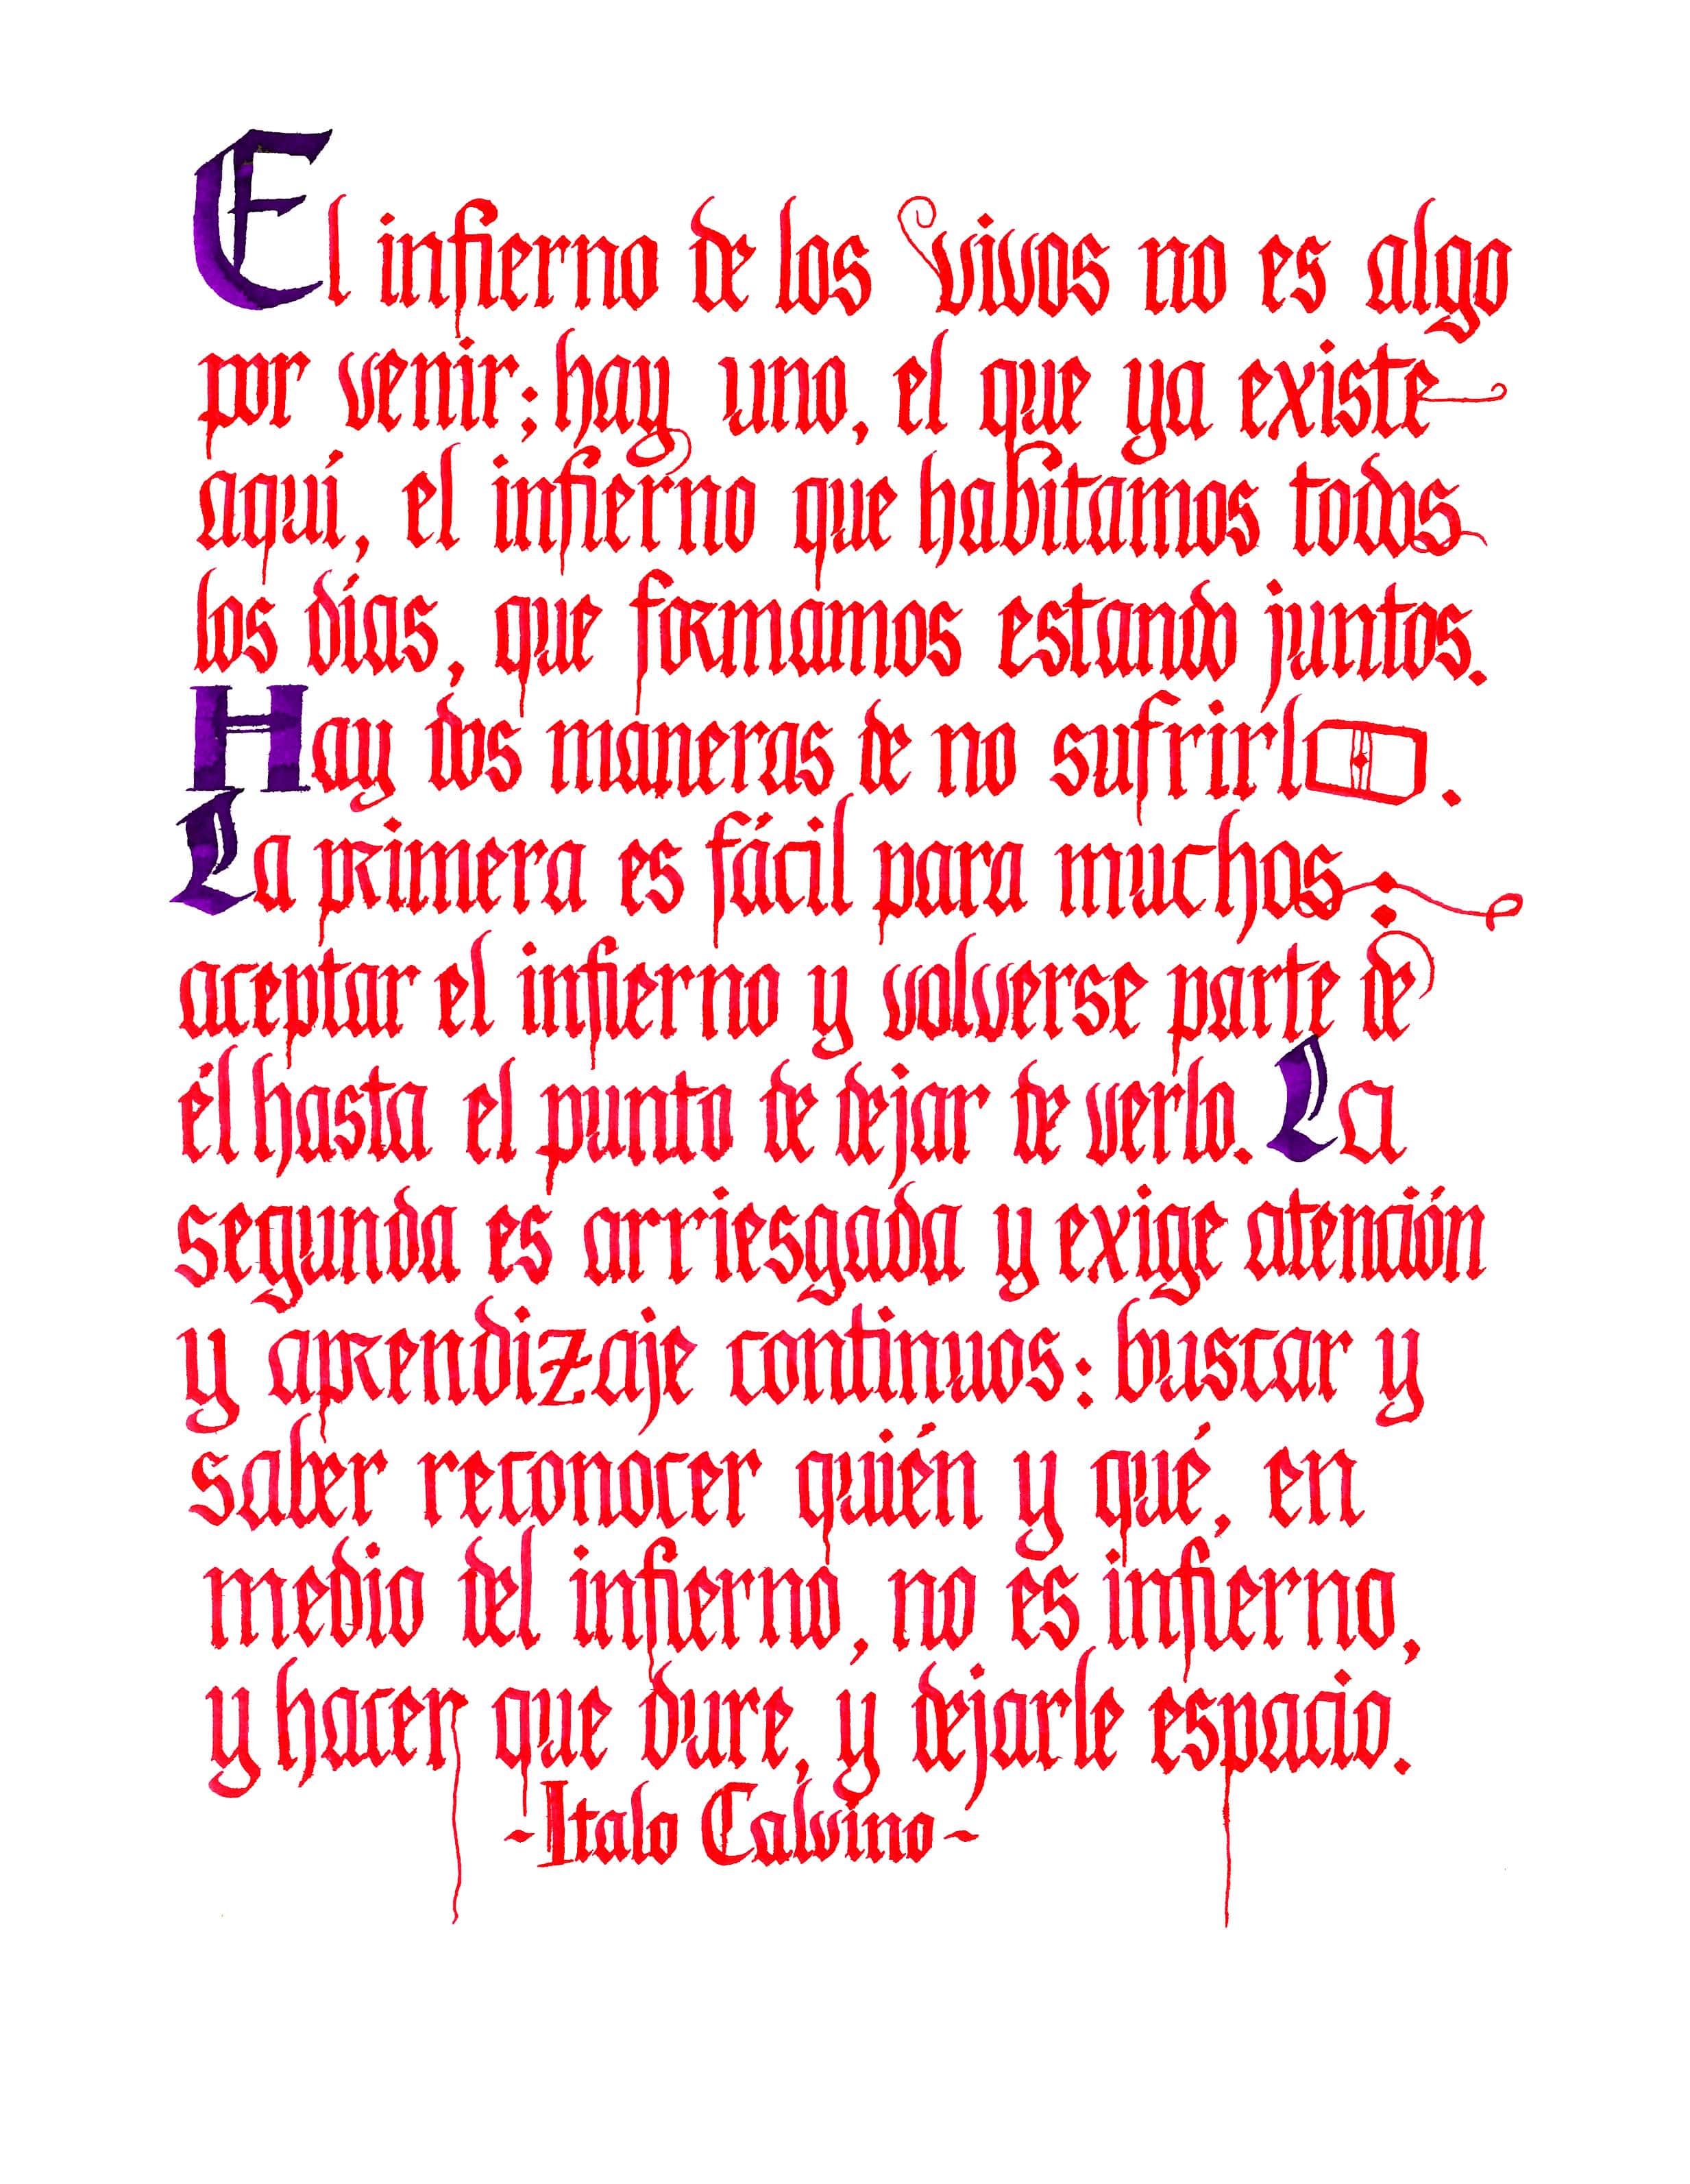 El infierno de los vivos no es algo
por venir; hay uno, el que ya existe
aquí, el infierno que habitamos todos
los días, que formamos estando juntos.
Hay dos maneras de no sufrirlo.
La primera es fácil para muchos:
aceptar el infierno y volverse parte de
él hasta el punto de dejar de verlo. La
segunda es arriesgada y exige atención
y aprendizaje continuos: buscar y
saber reconocer quién y qué, en
medio del infierno, no es infierno,
y hacer que dure, y dejarle espacio.
-Italo Calvino-